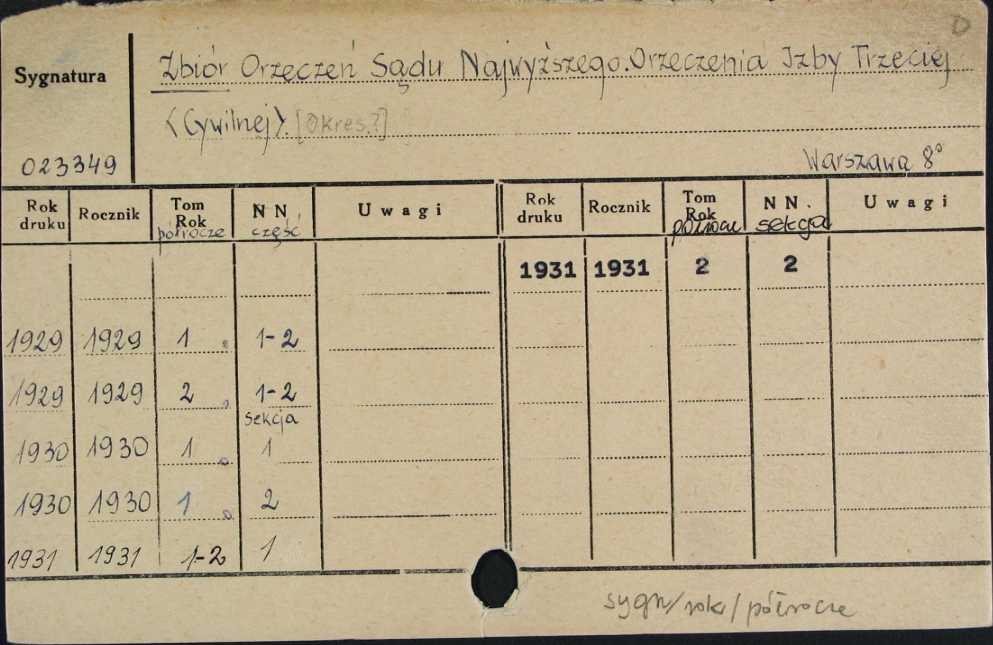 D
Zbiór Orzeczeń Sądu Najwyższego. Orzeczenia Izby Trzeciej
Sygnatura
(Cywilnej). [Okres?]
023349
Warszawa 8°
Rok druku Rocznik Tom Rok półrocze NN część Uwagi Rok druku Rocznik Tom Rok półrocze NN. sekcja Uwagi
1931 1931 2 2
1929 1929 1 1-2
1929 1929 2 1-2
sekcja
1930 1930 1 1
1930 1930 1 2
1931 1931 1-2 1
sygn/rok/półrocze